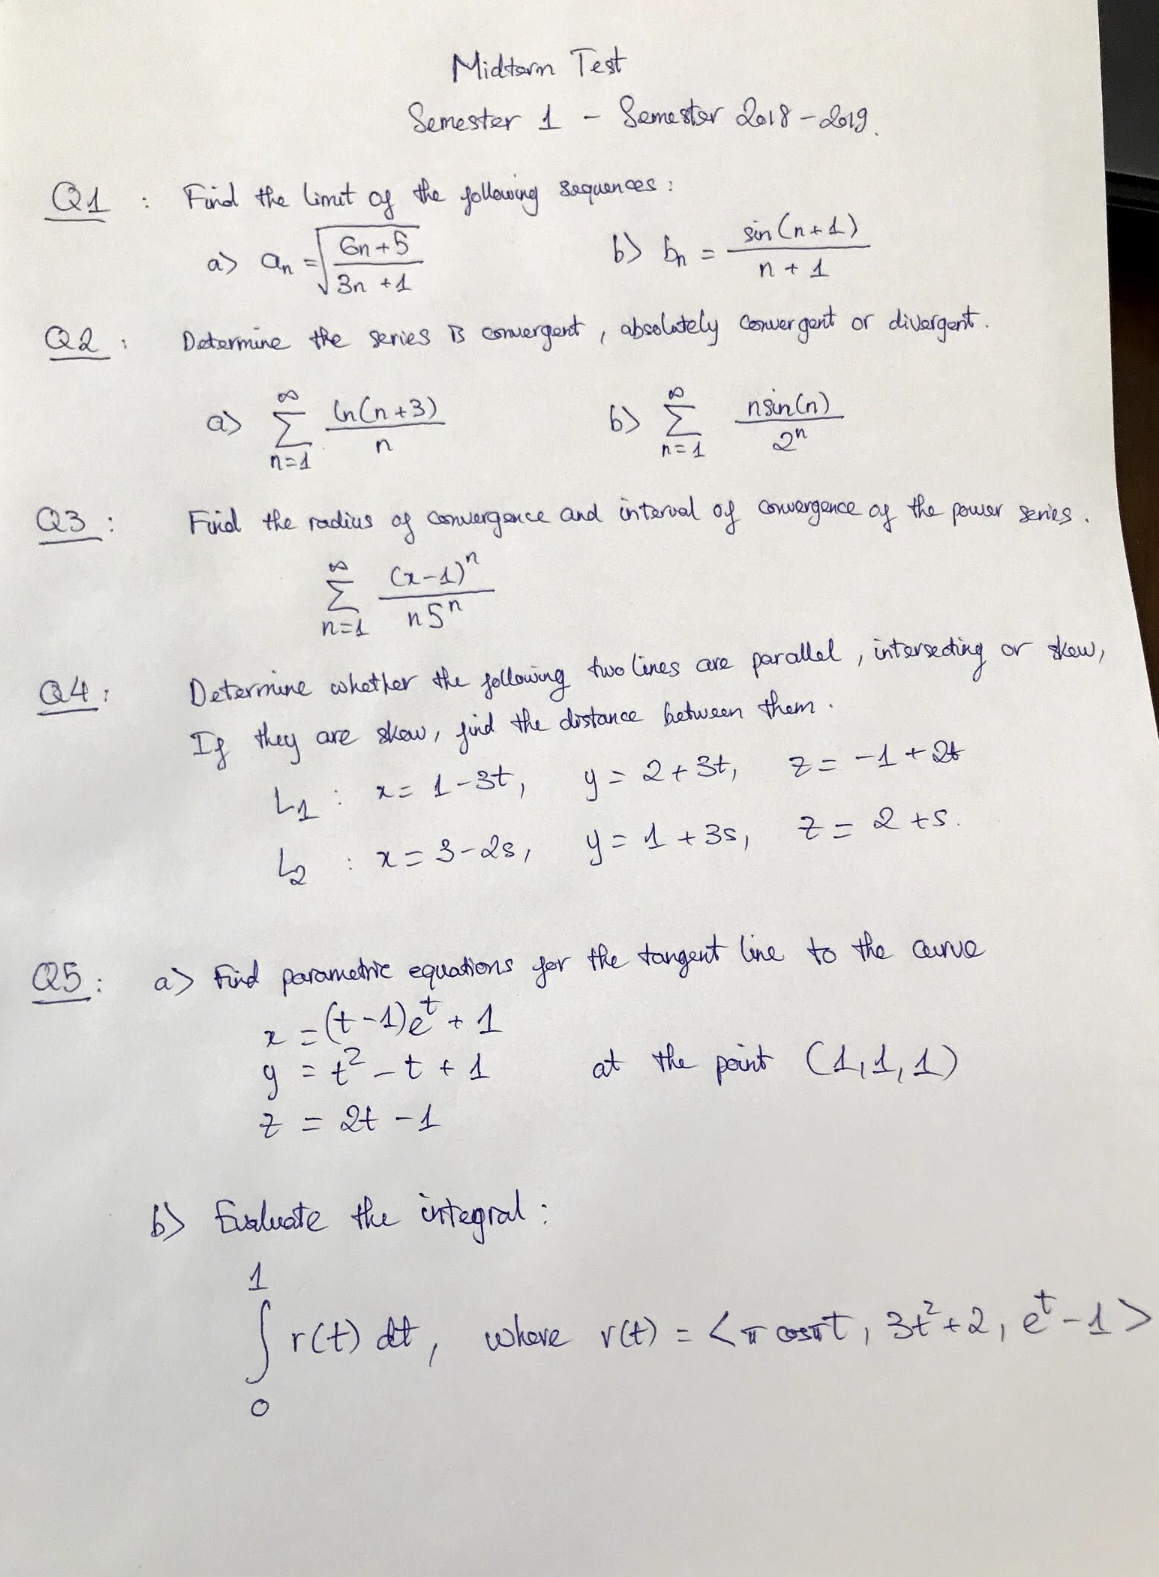 Midterm Test
Semester 1 - Semester 2018-2019.
Q1 : Find the limit of the following sequences :
a) aₙ = √((6n+5)/(3n+1)) b) bₙ = sin(n+1)/(n+1)
Q2 : Determine the series is convergent, absolutely convergent or divergent.
a) ∑_{n=1}^{∞} ln(n+3)/n b) ∑_{n=1}^{∞} nsin(n)/2ⁿ
Q3 : Find the radius of convergence and interval of convergence of the power series.
∑_{n=1}^{∞} (x-1)ⁿ/(n5ⁿ)
Q4 : Determine whether the following two lines are parallel, intersecting or skew,
If they are skew, find the distance between them.
L₁ : x = 1-3t, y = 2+3t, z = -1+2t
L₂ : x = 3-2s, y = 1+3s, z = 2+s.
Q5 : a) Find parametric equations for the tangent line to the curve
x = (t-1)eᵗ + 1
y = t² - t + 1 at the point (1,1,1)
z = 2t - 1
b) Evaluate the integral :
∫₀¹ r(t) dt, where r(t) = <π cosπt, 3t²+2, eᵗ-1>